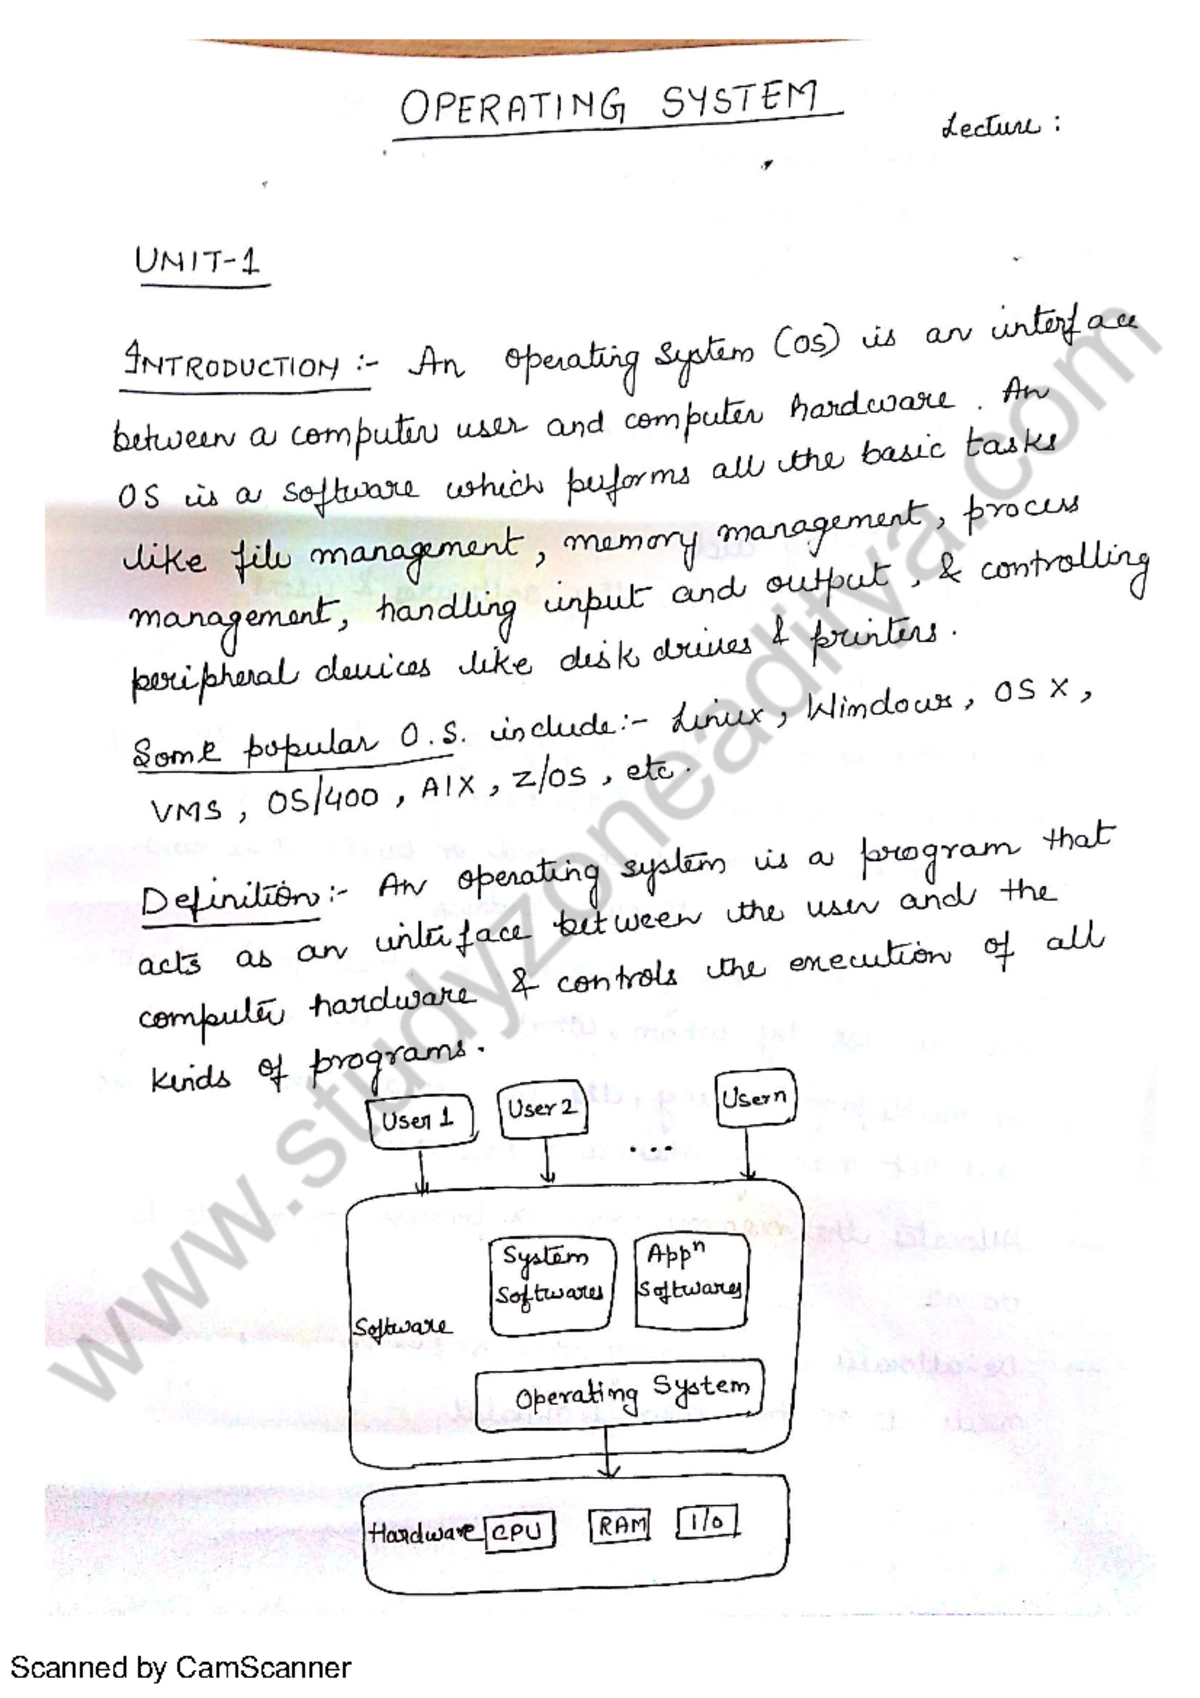 OPERATING SYSTEM
Lecture :
UNIT-1
INTRODUCTION :- An operating system (OS) is an interface
between a computer user and computer hardware. An
OS is a software which performs all the basic tasks
like file management, memory management, process
management, handling input and output, & controlling
peripheral devices like disk drives & printers.
Some popular O.S. include:- Linux, Windows, OS X,
VMS, OS/400, AIX, z/OS, etc.
Definition:- An operating system is a program that
acts as an interface between the user and the
computer hardware & controls the execution of all
kinds of programs.
User 1
User 2
...
User n
System
Softwares
Appⁿ
Softwares
Software
Operating System
Hardware
CPU
RAM
I/O
www.studyzoneaditya.com
Scanned by CamScanner